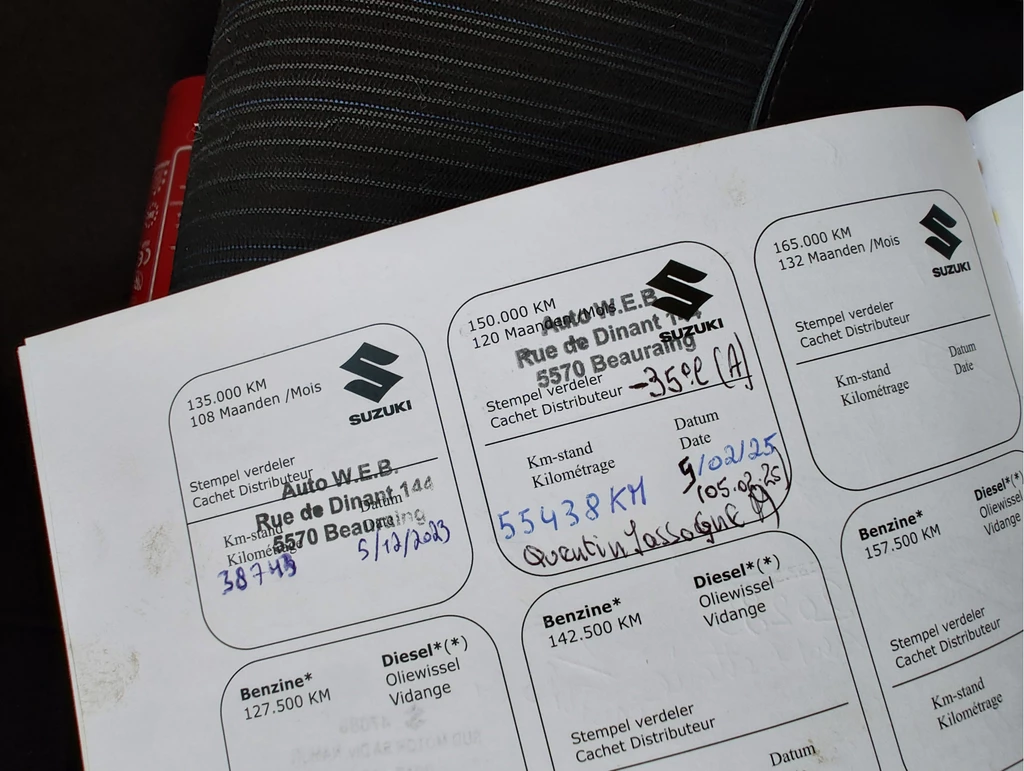 135.000 KM
108 Maanden /Mois
SUZUKI
Stempel verdeler
Cachet Distributeur
Auto W.E.B.
Rue de Dinant 144
5570 Beauraing
Km-stand
Kilométrage
Datum
Date
38743
5/12/2023
150.000 KM
120 Maanden /Mois
SUZUKI
Auto W.E.B
Rue de Dinant 144
5570 Beauraing
Stempel verdeler
Cachet Distributeur
-35°C (A)
Km-stand
Kilométrage
Datum
Date
55438 KM
5/02/25
(05.02.25
Quentin
165.000 KM
132 Maanden /Mois
SUZUKI
Stempel verdeler
Cachet Distributeur
Km-stand
Kilométrage
Datum
Date
Benzine*
127.500 KM
Diesel*(*)
Oliewissel
Vidange
Benzine*
142.500 KM
Diesel*(*)
Oliewissel
Vidange
Stempel verdeler
Cachet Distributeur
Datum
Benzine*
157.500 KM
Diesel*(*)
Oliewissel
Vidange
Stempel verdeler
Cachet Distributeur
Km-stand
Kilométrage